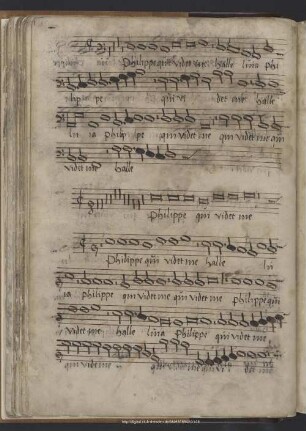 Philippe qui videt me halle luia Phi
lip pe qui vi det me halle
lu ia Philip pe qui videt me qui videt me qui
videt me halle
Philippe qui videt me
Philippe qui videt me halle lu
ia Philippe qui videt me qui videt me Philippe qui
videt me halle luia Philippe qui videt me
qui videt me